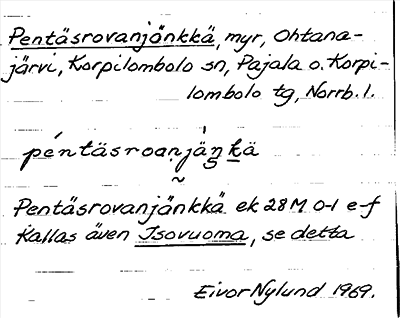 Pentäsrovanjänkkä, myr, Ohtana-
järvi, Korpilombolo sn, Pajala o. Korpi-
lombolo tg, Norrb. l.
péntäsroanjäŋkä
Pentäsrovanjänkkä ek 28 M 0-1 e-f
Kallas även Isovuoma, se detta
Eivor Nylund 1969.